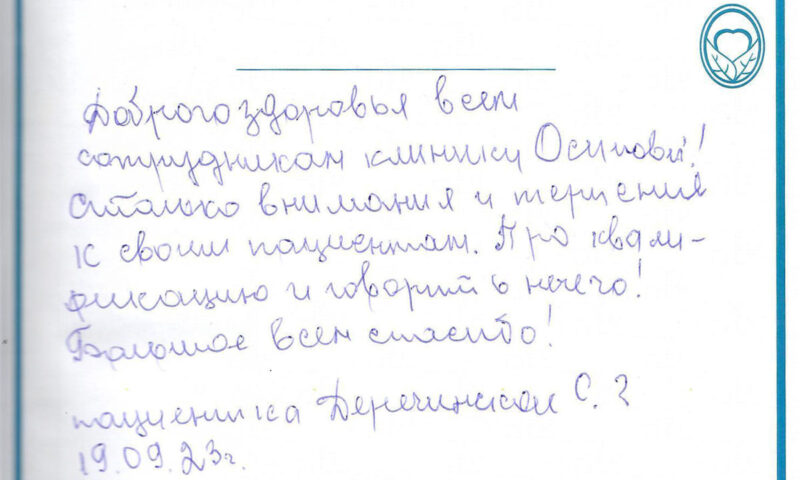 Доброго здоровья всем
сотрудникам клиники Осиповой!
Столько внимания и терпения
к своим пациентам. Про квали-
фикацию и говорить нечего!
Большое всем спасибо!
пациентка Деречинская С.
19.09.23г.